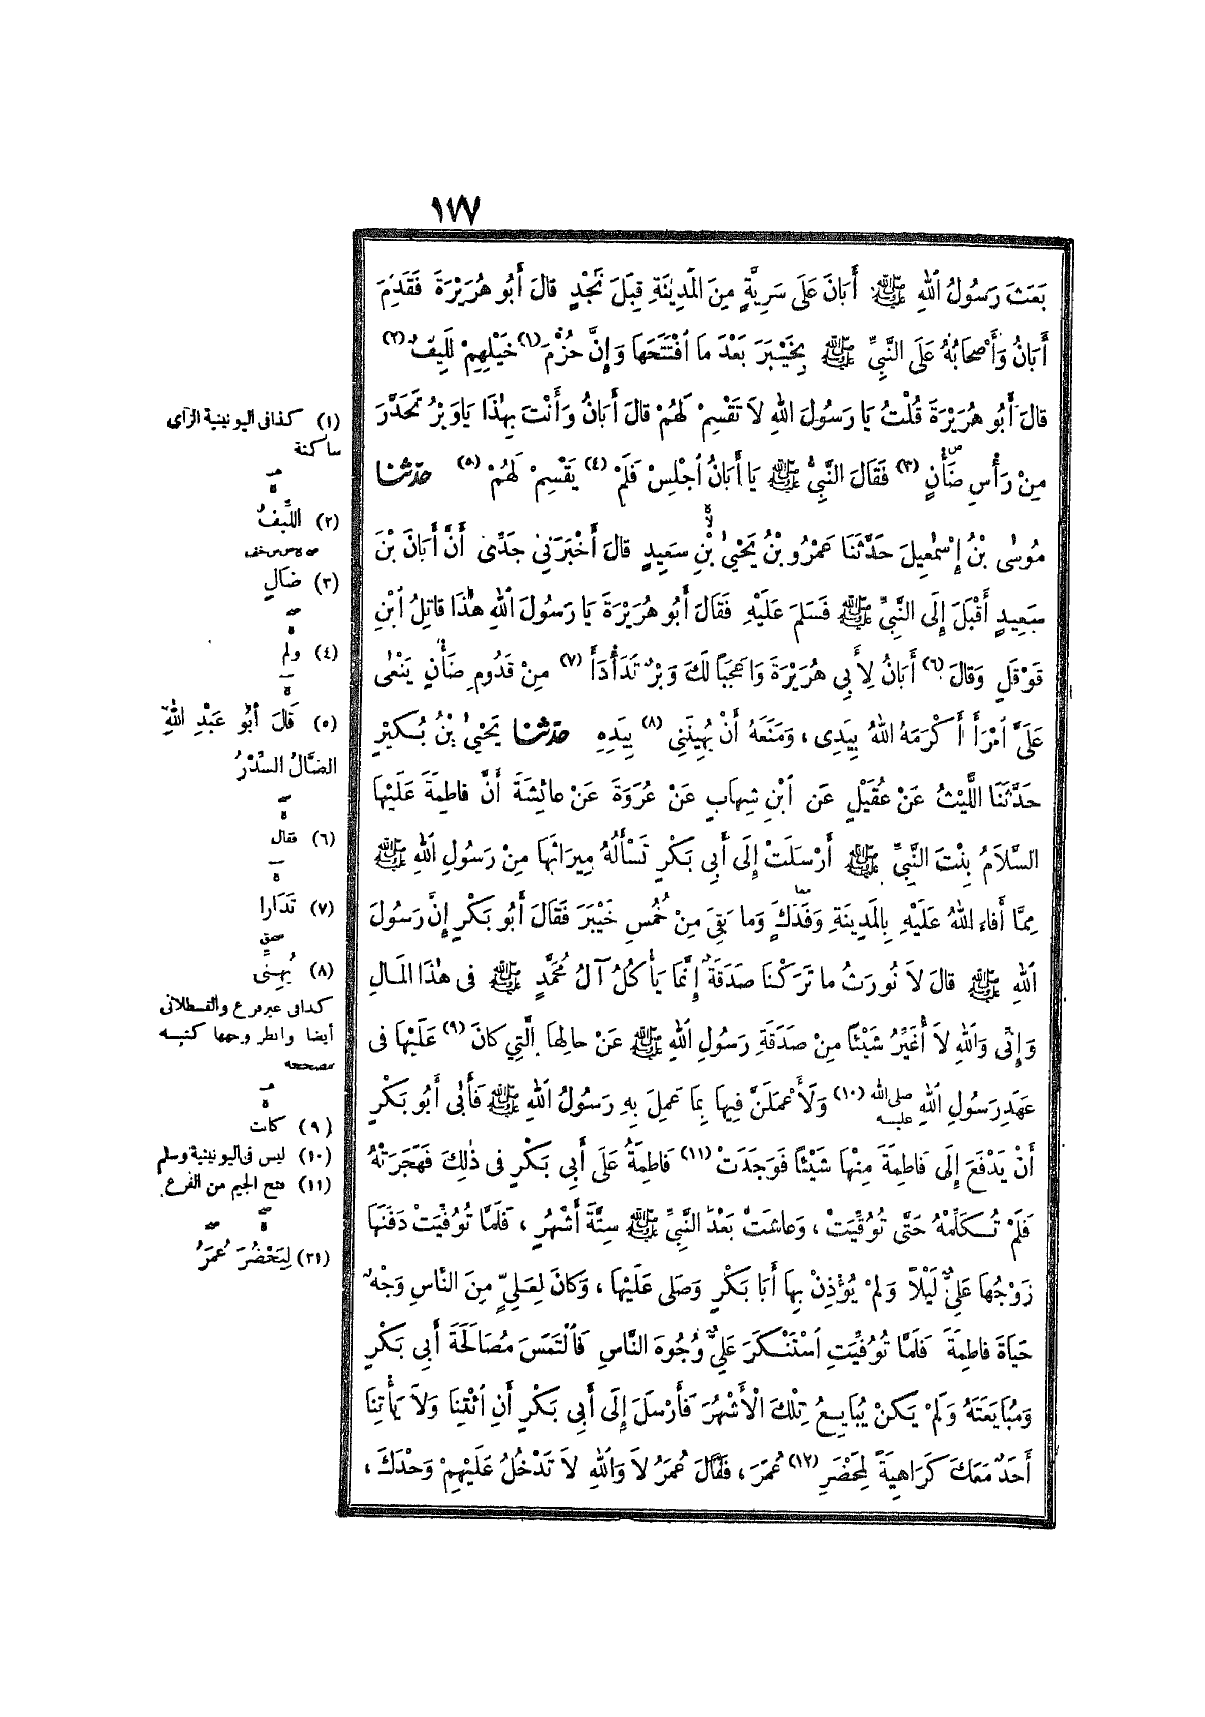 ١٧٧
بَعَثَ رَسُولُ اللهِ ﷺ أَبَانَ عَلَى سَرِيَّةٍ مِنَ الْمَدِينَةِ قِبَلَ نَجْدٍ قالَ أَبُو هُرَيْرَةَ فَقَدِمَ
أَبَانُ وَأَصْحَابُهُ عَلَى النَّبِيِّ ﷺ بِخَيْبَرَ بَعْدَ ما افْتَتَحَهَا وَإِنَّ حُزْمَ (١) خَيْلِهِمْ لَلِيفٌ (٢)
قالَ أَبُو هُرَيْرَةَ قُلْتُ يَا رَسُولَ اللهِ لاَ تَقْسِمْ لَهُمْ قالَ أَبَانُ وَأَنْتَ بِهٰذَا يَا وَبْرُ تَحَدَّرَ
مِنْ رَأْسِ ضَأْنٍ (٣) فَقَالَ النَّبِيُّ ﷺ يَا أَبَانُ اجْلِسْ فَلَمْ (٤) يَقْسِمْ لَهُمْ (٥) حدّثنا
مُوسٰى بْنُ إِسْمٰعِيلَ حَدَّثَنَا عَمْرُو بْنُ يَحْيٰى بْنِ سَعِيدٍ قالَ أَخْبَرَنِي جَدِّى أَنَّ أَبَانَ بْنَ
سَعِيدٍ أَقْبَلَ إِلَى النَّبِيِّ ﷺ فَسَلَّمَ عَلَيْهِ فَقَالَ أَبُو هُرَيْرَةَ يَا رَسُولَ اللهِ هٰذَا قاتِلُ ابْنِ
قَوْقَلٍ وَقالَ (٦) أَبَانُ لِأَبِي هُرَيْرَةَ وَاعَجَبًا لَكَ وَبْرٌ تَدَأْدَأَ (٧) مِنْ قَدُومِ ضَأْنٍ يَنْعٰى
عَلَيَّ امْرَأً أَكْرَمَهُ اللهُ بِيَدِى ، وَمَنَعَهُ أَنْ يُهِينَنِي (٨) بِيَدِهِ حدّثنا يَحْيٰى بْنُ بُكَيْرٍ
حَدَّثَنَا اللَّيْثُ عَنْ عُقَيْلٍ عَنِ ابْنِ شِهَابٍ عَنْ عُرْوَةَ عَنْ عائِشَةَ أَنَّ فاطِمَةَ عَلَيْهَا
السَّلاَمُ بِنْتَ النَّبِيِّ ﷺ أَرْسَلَتْ إِلَى أَبِي بَكْرٍ تَسْأَلُهُ مِيرَاثَهَا مِنْ رَسُولِ اللهِ ﷺ
مِمَّا أَفاءَ اللهُ عَلَيْهِ بِالْمَدِينَةِ وَفَدَكٍ وَما بَقِيَ مِنْ خُمُسِ خَيْبَرَ فَقَالَ أَبُو بَكْرٍ إِنَّ رَسُولَ
اللهِ ﷺ قالَ لاَ نُورَثُ ما تَرَكْنَا صَدَقَةٌ إِنَّمَا يَأْكُلُ آلُ مُحَمَّدٍ ﷺ فى هٰذَا الْمَالِ
وَإِنِّى وَاللهِ لاَ أُغَيِّرُ شَيْئًا مِنْ صَدَقَةِ رَسُولِ اللهِ ﷺ عَنْ حالِهَا الَّتِي كانَ (٩) عَلَيْهَا فى
عَهْدِ رَسُولِ اللهِ صلى الله عليه (١٠) وَلَأَعْمَلَنَّ فِيهَا بِمَا عَمِلَ بِهِ رَسُولُ اللهِ ﷺ فَأَبٰى أَبُو بَكْرٍ
أَنْ يَدْفَعَ إِلَى فاطِمَةَ مِنْهَا شَيْئًا فَوَجَدَتْ (١١) فاطِمَةُ عَلَى أَبِي بَكْرٍ فى ذٰلِكَ فَهَجَرَتْهُ
فَلَمْ تُكَلِّمْهُ حَتَّى تُوُفِّيَتْ ، وَعاشَتْ بَعْدَ النَّبِيِّ ﷺ سِتَّةَ أَشْهُرٍ ، فَلَمَّا تُوُفِّيَتْ دَفَنَهَا
زَوْجُهَا عَلِيٌّ لَيْلاً وَلَمْ يُؤْذِنْ بِهَا أَبَا بَكْرٍ وَصَلَّى عَلَيْهَا ، وَكانَ لِعَلِيٍّ مِنَ النَّاسِ وَجْهٌ
حَيَاةَ فاطِمَةَ فَلَمَّا تُوُفِّيَتِ اسْتَنْكَرَ عَلِيٌّ وُجُوهَ النَّاسِ فَالْتَمَسَ مُصَالَحَةَ أَبِي بَكْرٍ
وَمُبَايَعَتَهُ وَلَمْ يَكُنْ يُبَايِعُ تِلْكَ الْأَشْهُرَ فَأَرْسَلَ إِلَى أَبِي بَكْرٍ أَنِ ائْتِنَا وَلاَ يَأْتِنَا
أَحَدٌ مَعَكَ كَرَاهِيَةً لِمَحْضَرِ (١٢) عُمَرَ ، فَقَالَ عُمَرُ لاَ وَاللهِ لاَ تَدْخُلُ عَلَيْهِمْ وَحْدَكَ ،
(١) كذا فى اليونينية الزاى
ساكنة
(٢) اللِّيفُ
(٣) ضَالٍ
(٤) ولم
(٥) قَالَ أَبُو عَبْدِ اللهِ
الضَّالُ السِّدْرُ
(٦) فقال
(٧) تَدَارا
(٨) يُهِنِّى
كذا فى غير فرع والقسطلانى
أيضا وانظر وجهها كتبه
مصححه
(٩) كانت
(١٠) ليس فى اليونينية وسلم
(١١) فتح الجيم من الفرع
(٣١) لِيَحْضُرَ عُمَرُ